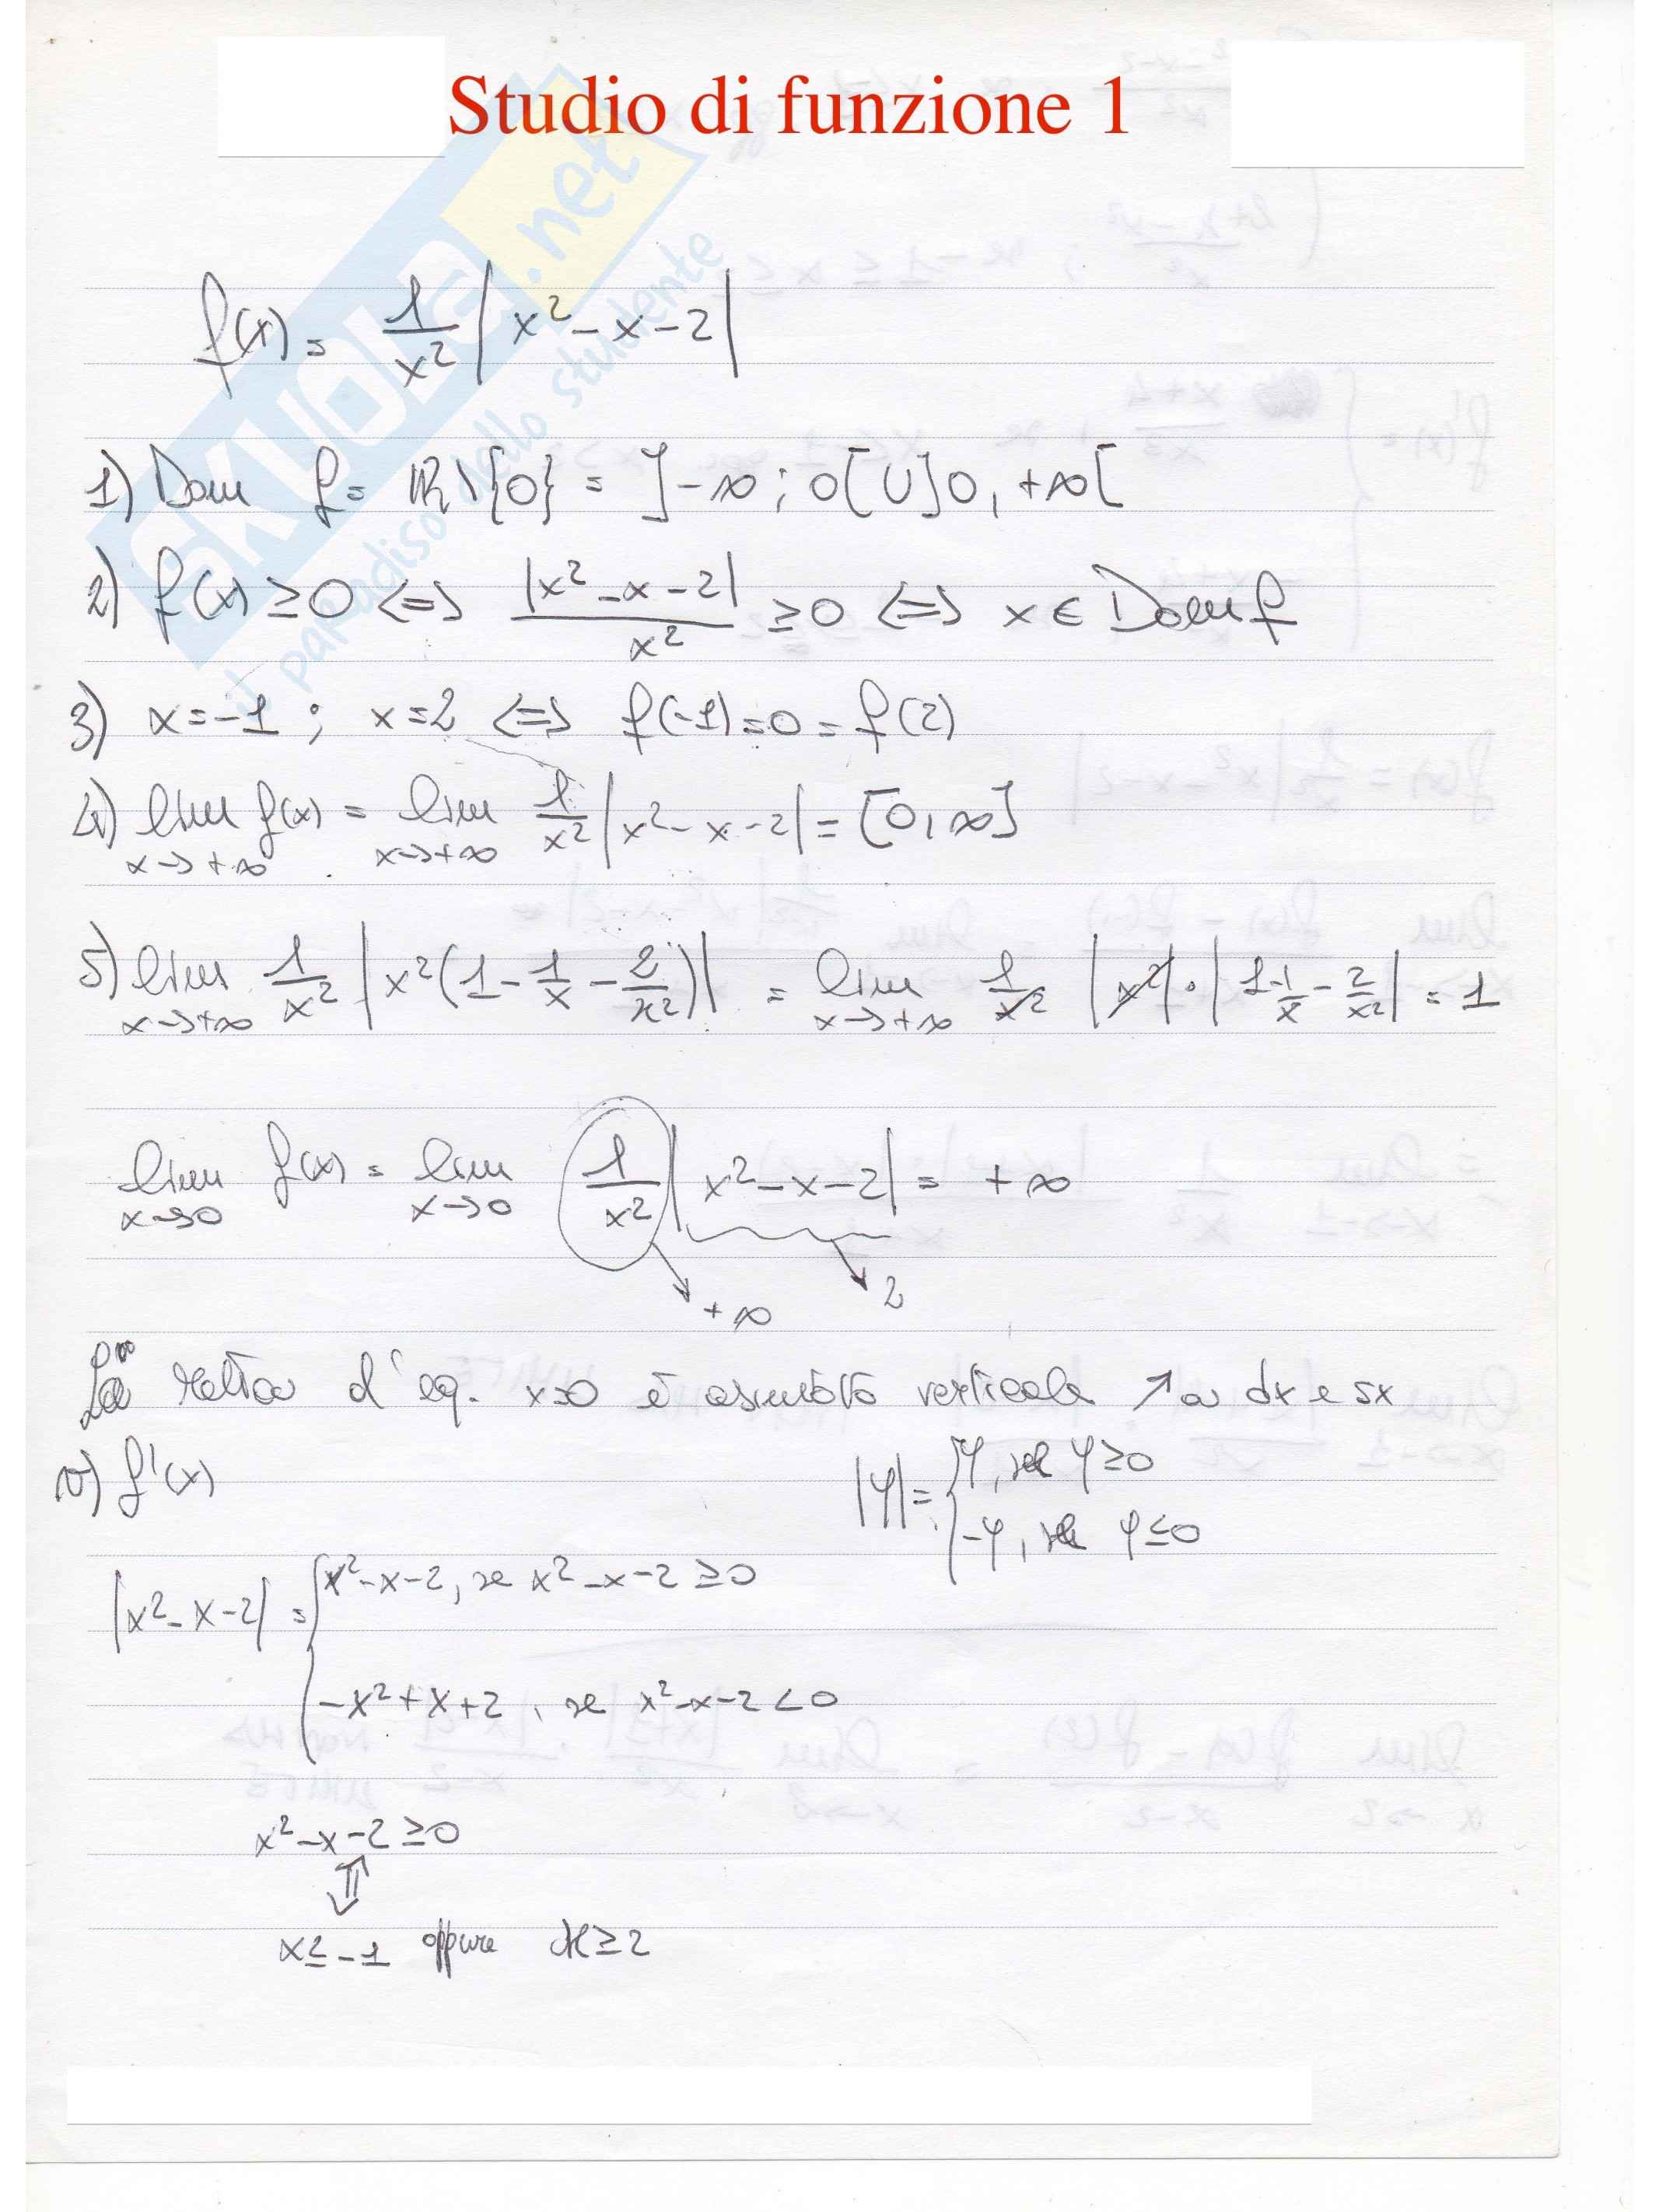 Studio di funzione 1
SKUOLA.net
il paradiso dello studente
f(x) = 1/x² |x² - x - 2|
1) Dom f = ℝ\{0} = ]-∞; 0[ U ]0, +∞[
2) f(x) ≥ 0 <=> |x² - x - 2|/x² ≥ 0 <=> x ∈ Dom f
3) x = -1 ; x = 2 <=> f(-1) = 0 = f(2)
4) lim x->+∞ f(x) = lim x->+∞ 1/x² |x² - x - 2| = [0, ∞]
5) lim x->+∞ 1/x² |x²(1 - 1/x - 2/x²)| = lim x->+∞ 1/x² |x²| · |1 - 1/x - 2/x²| = 1
lim x->0 f(x) = lim x->0 1/x² |x² - x - 2| = +∞
+∞ 2
La retta d'eq. x=0 è asintoto verticale ↗ a dx e sx
f'(x)
|φ| = { φ, se φ ≥ 0
-φ, se φ ≤ 0
|x² - x - 2| = { x² - x - 2, se x² - x - 2 ≥ 0
-x² + x + 2, se x² - x - 2 < 0
x² - x - 2 ≥ 0
⇕
x ≤ -1 oppure x ≥ 2